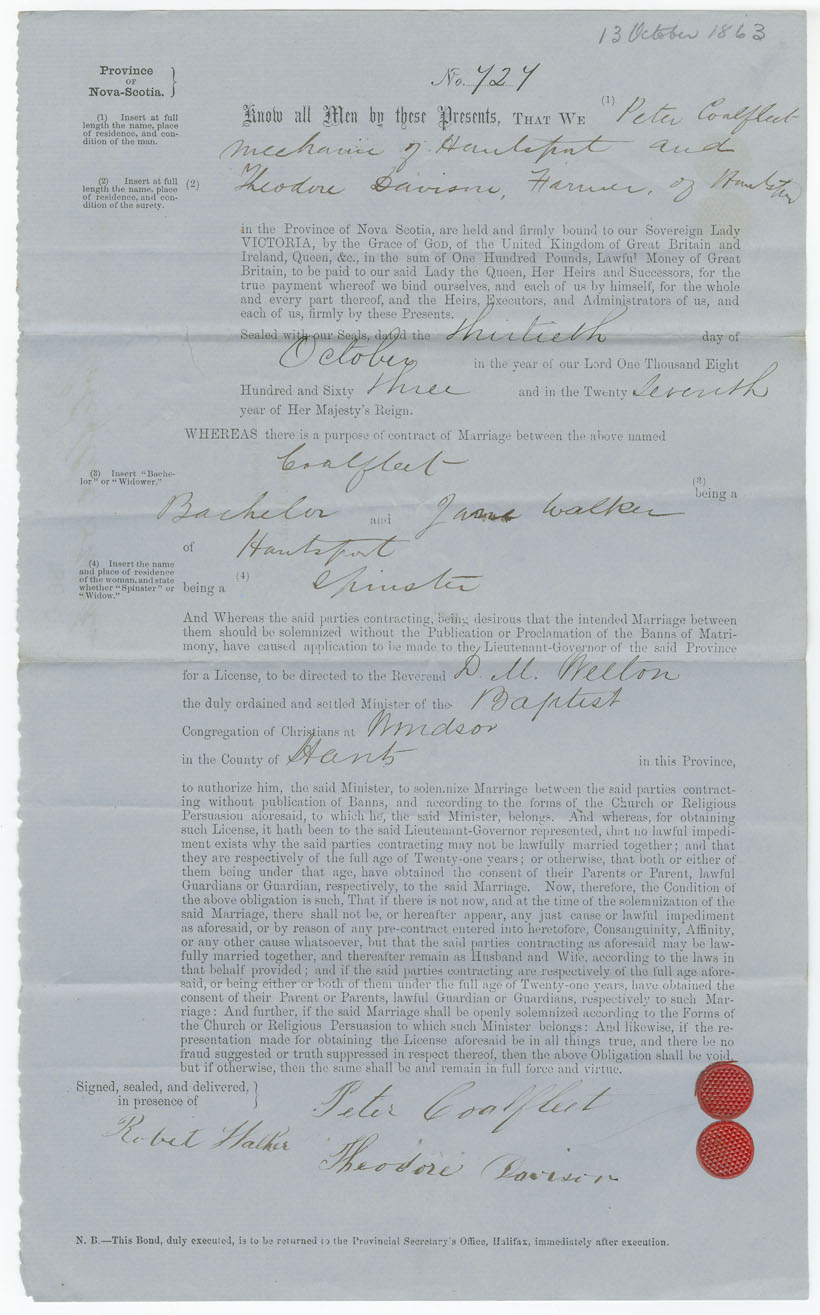 13 October 1863
Province
OF
Nova-Scotia.
No. 727
(1) Insert at full
length the name, place
of residence, and con-
dition of the man.
Know all Men by these Presents, THAT WE (1) Peter Coalfleet
mechanic of Hantsport and
(2) Insert at full
length the name, place
of residence, and con-
dition of the surety.
(2) Theodore Davison, Farmer, of Hantsport
in the Province of Nova Scotia, are held and firmly bound to our Sovereign Lady
VICTORIA, by the Grace of GOD, of the United Kingdom of Great Britain and
Ireland, Queen, &c., in the sum of One Hundred Pounds, Lawful Money of Great
Britain, to be paid to our said Lady the Queen, Her Heirs and Successors, for the
true payment whereof we bind ourselves, and each of us by himself, for the whole
and every part thereof, and the Heirs, Executors, and Administrators of us, and
each of us, firmly by these Presents.
Sealed with our Seals, dated the thirtieth day of
October in the year of our Lord One Thousand Eight
Hundred and Sixty three and in the Twenty Seventh
year of Her Majesty's Reign.
WHEREAS there is a purpose of contract of Marriage between the above named
Coalfleet
(3) Insert "Bache-
lor" or "Widower."
(3)
being a
Bachelor and Jane Walker
of Hantsport
(4) Insert the name
and place of residence
of the woman, and state
whether "Spinster" or
"Widow."
being a (4) Spinster
And Whereas the said parties contracting, being desirous that the intended Marriage between
them should be solemnized without the Publication or Proclamation of the Banns of Matri-
mony, have caused application to be made to the Lieutenant-Governor of the said Province
for a License, to be directed to the Reverend D. M. Welton
the duly ordained and settled Minister of the Baptist
Congregation of Christians at Windsor
in the County of Hants in this Province,
to authorize him, the said Minister, to solemnize Marriage between the said parties contract-
ing without publication of Banns, and according to the forms of the Church or Religious
Persuasion aforesaid, to which he, the said Minister, belongs. And whereas, for obtaining
such License, it hath been to the said Lieutenant-Governor represented, that no lawful impedi-
ment exists why the said parties contracting may not be lawfully married together; and that
they are respectively of the full age of Twenty-one years; or otherwise, that both or either of
them being under that age, have obtained the consent of their Parents or Parent, lawful
Guardians or Guardian, respectively, to the said Marriage. Now, therefore, the Condition of
the above obligation is such, That if there is not now, and at the time of the solemnization of the
said Marriage, there shall not be, or hereafter appear, any just cause or lawful impediment
as aforesaid, or by reason of any pre-contract entered into heretofore, Consanguinity, Affinity,
or any other cause whatsoever, but that the said parties contracting as aforesaid may be law-
fully married together, and thereafter remain as Husband and Wife, according to the laws in
that behalf provided; and if the said parties contracting are respectively of the full age afore-
said, or being either or both of them under the full age of Twenty-one years, have obtained the
consent of their Parent or Parents, lawful Guardian or Guardians, respectively to such Mar-
riage: And further, if the said Marriage shall be openly solemnized according to the Forms of
the Church or Religious Persuasion to which such Minister belongs: And likewise, if the re-
presentation made for obtaining the License aforesaid be in all things true, and there be no
fraud suggested or truth suppressed in respect thereof, then the above Obligation shall be void,
but if otherwise, then the same shall be and remain in full force and virtue.
Signed, sealed, and delivered,
in presence of
Peter Coalfleet
Robert Walker
Theodore Davison
N. B.—This Bond, duly executed, is to be returned to the Provincial Secretary's Office, Halifax, immediately after execution.